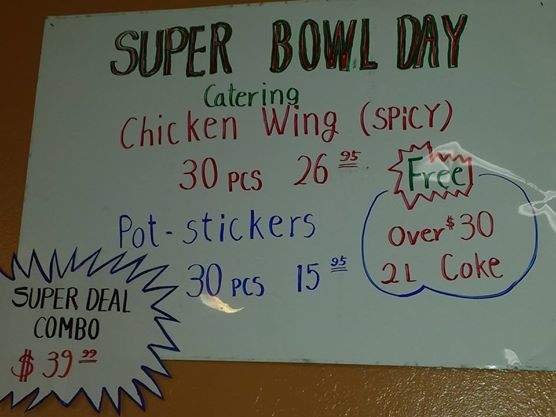 SUPER BOWL DAY
Catering
Chicken Wing (SPICY)
30 PCS 26 95
Free
Over $30
2L Coke
Pot-stickers
30 PCS 15 95
SUPER DEAL
COMBO
$39 99